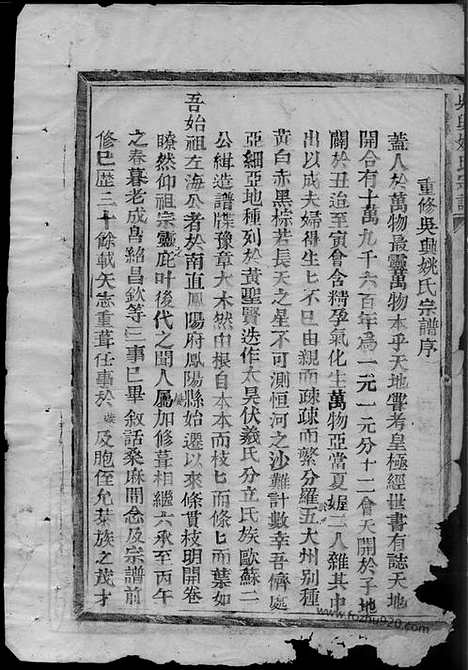 吳興姚氏宗譜
重修吳興姚氏宗譜序
蓋人於萬物最靈萬物本乎天地嘗考皇極經世書有誌天地
開合有十萬九千六百年為一元一元分十二會天開於子地
闢於丑迨至寅會含精孕氣化生萬物亞當夏娃二人雜其中
出以成夫婦得生匕不巳由親而疎疎而繁分羅五大州別種
黃白赤黑棕若長天之星不可測恒河之沙難計數幸吾儕處
亞細亞地種列於黃聖賢迭作太昊伏羲氏分立氏族歐蘇二
公緝造譜牒豫章大木然由根自本本而枝匕而條匕而葉如
吾始祖左海公者於南直鳳陽府鳳陽縣始遷以來條貫枝明開卷
瞭然仰祖宗靈庇叶後代之聞人屬加修葺相繼六承至丙午
之春暮老成昌紹昌欽等三事巳畢敘話桑麻間念及宗譜前
修巳歷三十餘載矢志重葺任事於 及胞侄允菜族之茂才
www.fozhu920.com